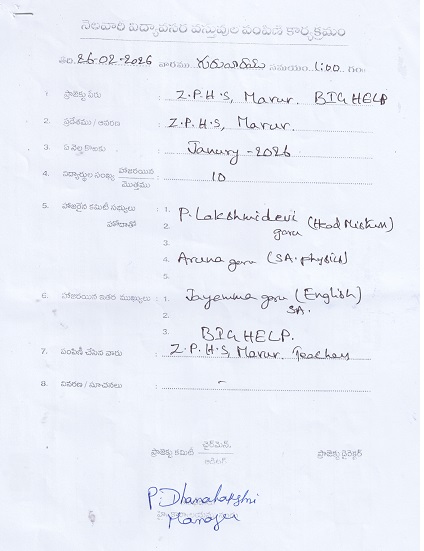 నెలవారి విద్యావసర వస్తువుల పంపిణీ కార్యక్రమం
తేది. 26-02-2026 వారము గురువారము సమయం 1:00 గం.
1. ప్రాజెక్టు పేరు : Z.P.H.S, Marur. BIG HELP
2. ప్రదేశము / ఆవరణ : Z.P.H.S, Marur.
3. ఏ నెల కొఱకు : Janury - 2026
4. విద్యార్థుల సంఖ్య హాజరయిన / మొత్తము : 10
5. హాజరైన కమిటీ సభ్యులు : 1. P. Lakshmidevi (Head Mistress)
హోదాతో 2. garu
3.
4. Aruna garu (SA. physics)
6. హాజరయిన ఇతర ముఖ్యులు : 1. Jayamma garu (English)
2. SA.
3. BIG HELP.
7. పంపిణీ చేసిన వారు : Z.P.H.S, Marur. Teachers
8. వివరణ / సూచనలు : -
ప్రాజెక్టు కమిటీ చైర్‌మెన్. ప్రాజెక్టు డైరెక్టర్
P. Dhanalakshmi
Manager